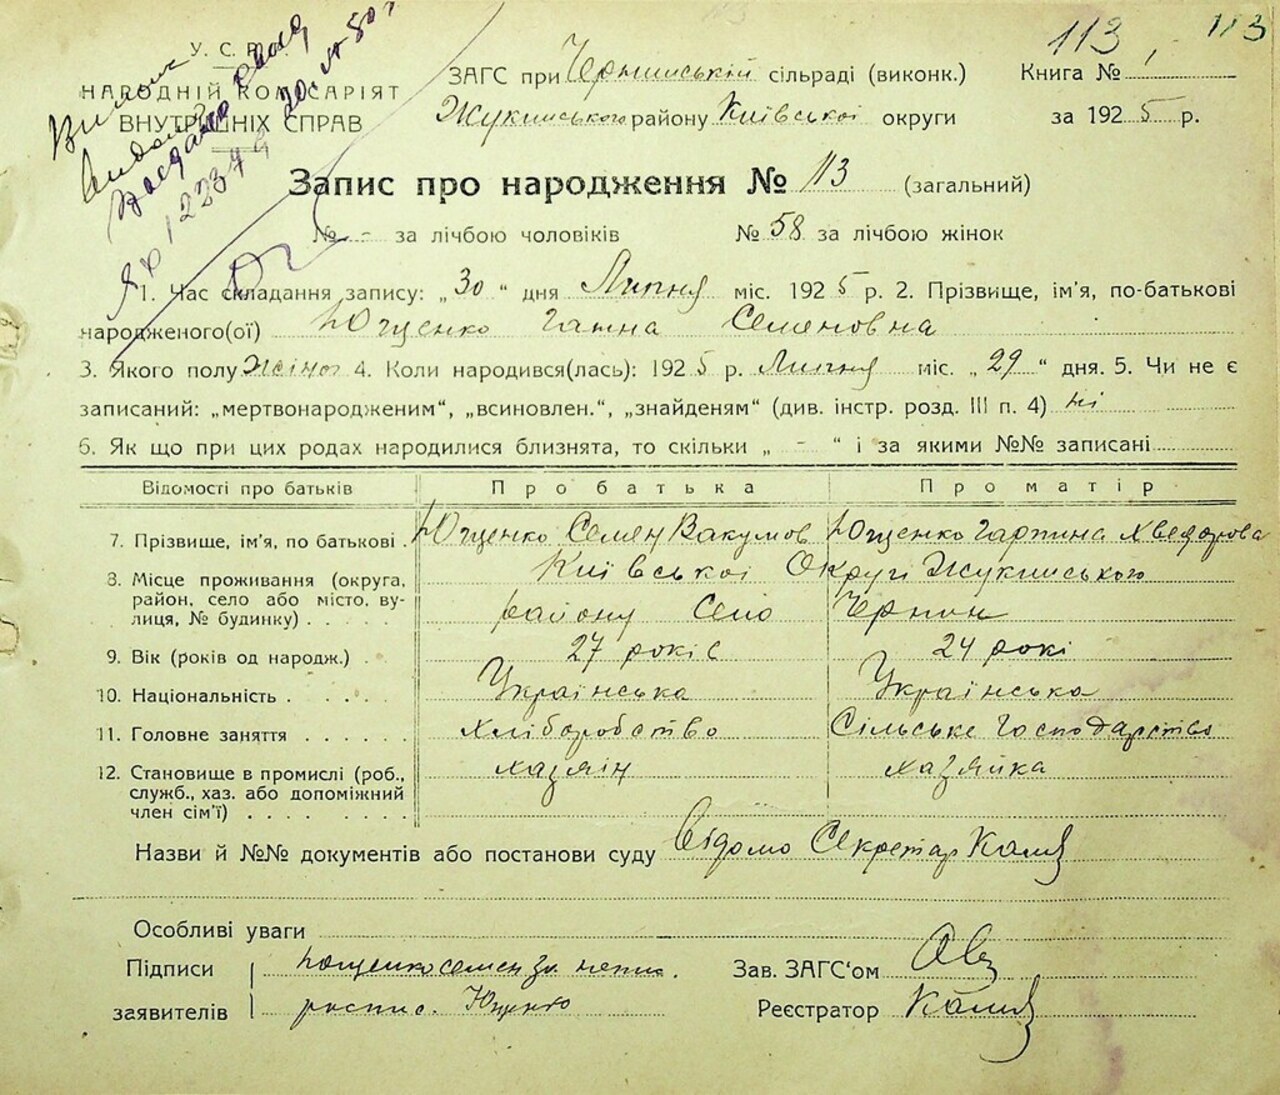 113, 113
У. С. Р. Р.
НАРОДНІЙ КОМІСАРІЯТ
ВНУТРІШНІХ СПРАВ
ЗАГС при Чернинській сільраді (виконк.) Книга №
Жукинського району Київської округи за 1925 р.
Запис про народження № 113 (загальний)
№ - за лічбою чоловіків № 58 за лічбою жінок
1. Час складання запису: „30" дня Липня міс. 1925 р. 2. Прізвище, ім'я, по-батькові
народженого(ої) Ющенко Ганна Семеновна
3. Якого полу Жіноч 4. Коли народився(лась): 1925 р. Липня міс. „29" дня. 5. Чи не є
записаний: „мертвонародженим", „всиновлен.", „знайденям" (див. інстр. розд. III п. 4) ні
6. Як що при цих родах народилися близнята, то скільки „ - " і за якими №№ записані
Відомості про батьків Про батька Про матір
7. Прізвище, ім'я, по батькові . Ющенко Семен Вакумов Ющенко Гапина Хведорова
8. Місце проживання (округа, Київської Округі Жукинського
район, село або місто, ву- району Село Чернин
лиця, № будинку) . . . . .
9. Вік (років од народж.) . 27 років 24 рокі
10. Національність . . . . Українська Українська
11. Головне заняття . . . . . Хліборобство Сільське Господарство
12. Становище в промислі (роб., хазяін хазяйка
служб., хаз. або допоміжний
член сім'ї) . . . . . . . .
Назви й №№ документів або постанови суду Відомо Секретар
Особливі уваги
Підписи Ющенко Семен за непис.
заявителів роспис. Ющенко
Зав. ЗАГС'ом
Реєстратор